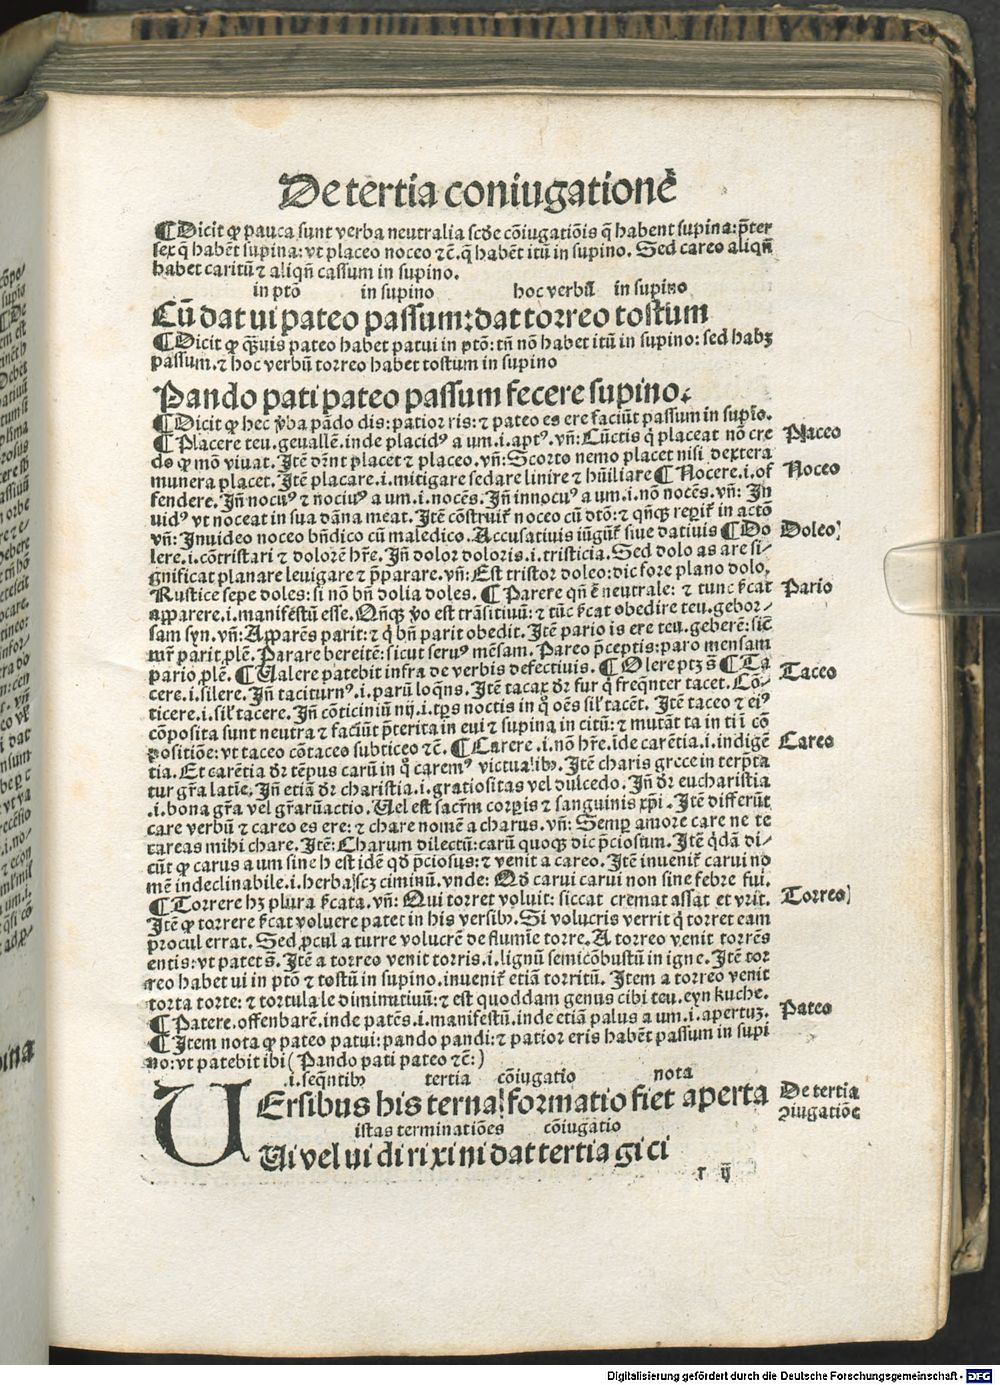 De tertia coniugatione
¶Dicit ꝙ pauca sunt verba neutralia scd̄e cōiugatiōis q̄ habent supina: p̄ter
sex q̄ habēt supina: vt placeo noceo ⁊c̄. q̄ habēt itū in supino. Sed careo aliqn̄
habet caritū ⁊ aliqn̄ cassum in supino.
in ptō in supino hoc verbū in supino
Cū dat ui pateo passum: dat torreo tostum
¶Dicit ꝙ q̄uis pateo habet patui in ptō: tn̄ nō habet itū in supino: sed habꝫ
passum. ⁊ hoc verbū torreo habet tostum in supino
Pando pati pateo passum fecere supino.
¶Dicit ꝙ hec v̄ba pādo dis: patior ris: ⁊ pateo es ere faciūt passum in supīo.
¶Placere teu. geuallē. inde placidꝰ a um .i. aptꝰ. vn̄: Cūctis q̄ placeat nō cre
do ꝙ mō viuat. Itē dr̄nt placet ⁊ placeo. vn̄: Scorto nemo placet nisi dextera
munera placet. Itē placare .i. mitigare sedare linire ⁊ hūiliare ¶Nocere .i. of
fendere. Jn̄ nocuꝰ ⁊ nociuꝰ a um .i. nocēs. Jn̄ innocuꝰ a um .i. nō nocēs. vn̄: In
uidꝰ vt noceat in sua dāna meat. Itē cōstruit̄ noceo cū dtō: ⁊ qn̄qꝫ reperit̄ in actō
vn̄: Inuideo noceo bn̄dico cū maledico. Accusatiuis iūgūt̄ siue datiuis ¶Do
lere .i. cōtristari ⁊ dolorē hr̄e. Jn̄ dolor doloris .i. tristicia. Sed dolo as are si-
gnificat planare leuigare ⁊ p̄parare. vn̄: Est tristor doleo: dic fore plano dolo,
Rustice sepe doles: si nō bn̄ dolia doles. ¶Parere qn̄ ē neutrale: ⁊ tunc sc̄at
apparere .i. manifestū esse. Qn̄qꝫ v̄o est trāsitiuū: ⁊ tūc sc̄at obedire teu. gehor-
sam syn. vn̄: Apparēs parit: ⁊ q̄ bn̄ parit obedit. Itē pario is ere teu. geberē: sicūt
mr̄ parit plē. Parare bereitē: sicut seruꝰ mēsam. Pareo p̄ceptis: paro mensam
pario plē. ¶Valere patebit infra de verbis defectiuis. ¶Olere ptꝫ s̄ ¶Ta
cere .i. silere. Jn̄ taciturnꝰ .i. parū loqn̄s. Itē tacax dr̄ fur q̄ freqn̄ter tacet. Cō-
ticere .i. sil̄ tacere. Jn̄ cōticiniū nij .i. tp̄s noctis in q̄ oēs sil̄ tacēt. Itē taceo ⁊ eiꝰ
cōposita sunt neutra ⁊ faciūt p̄terita in eui ⁊ supina in citū: ⁊ mutāt ta in ti ī cō
positiōe: vt taceo cōtaceo subticeo ⁊c̄. ¶Carere .i. nō hr̄e. īde carētia .i. indigē
tia. Et carētia dr̄ tēpus carū in q̄ caremꝰ victualibꝫ. Itē charis grece in terp̄ta
tur gr̄a latīe. Jn̄ etiā dr̄ charistia .i. gratiositas vel dulcedo. Jn̄ dr̄ eucharistia
.i. bona gr̄a vel gr̄aꝝ actio. Vel est sacr̄m corp̄is ⁊ sanguinis xp̄i. Itē differūt
care verbū ⁊ careo es ere: ⁊ chare nomē a charus. vn̄: Semp̄ amore care ne te
careas mihi chare. Itē: Charum dilectū: carū quoqꝫ dic p̄ciosum. Itē q̄dā di-
cūt ꝙ carus a um sine h est idē qd̄ p̄ciosus: ⁊ venit a careo. Itē inuenit̄ carui no
mē indeclinabile .i. herba scꝫ ciminū. vnde: Qd̄ carui carui non sine febre fui.
¶Torrere hꝫ plura sc̄ata. vn̄: Qui torret voluit: siccat cremat assat et vrit.
Itē ꝙ torrere sc̄at voluere patet in his versibꝫ. Si volucris verrit q̄ torret eam
procul errat. Sed p̄cul a turre volucrē de flumīe torre. A torreo venit torrēs
entis: vt patet s̄. Itē a torreo venit torris .i. lignū semicōbustū in igne. Itē tor
reo habet ui in ptō ⁊ tostū in supino. inuenit̄ etiā torritū. Item a torreo venit
torta torte: ⁊ tortula le diminutiuū: ⁊ est quoddam genus cibi teu. eyn kuche.
¶Patere. offenbarē. inde patēs .i. manifestū. inde etiā palus a um .i. apertuꝫ.
¶Item nota ꝙ pateo patui: pando pandi: ⁊ patior eris habēt passum in supi
no: vt patebit ibi (Pando pati pateo ⁊c̄:)
.i. seqn̄tibꝫ tertia cōiugatio nota
VErsibus his terna formatio fiet aperta
istas terminatiōes cōiugatio
Ui vel ui di ri xi ni dat tertia gi ci
r ij
Placeo
Noceo
Doleo
Pario
Taceo
Careo
Torreo
Pateo
De tertia
ↄiugatiōe
Digitalisierung gefördert durch die Deutsche Forschungsgemeinschaft - DFG